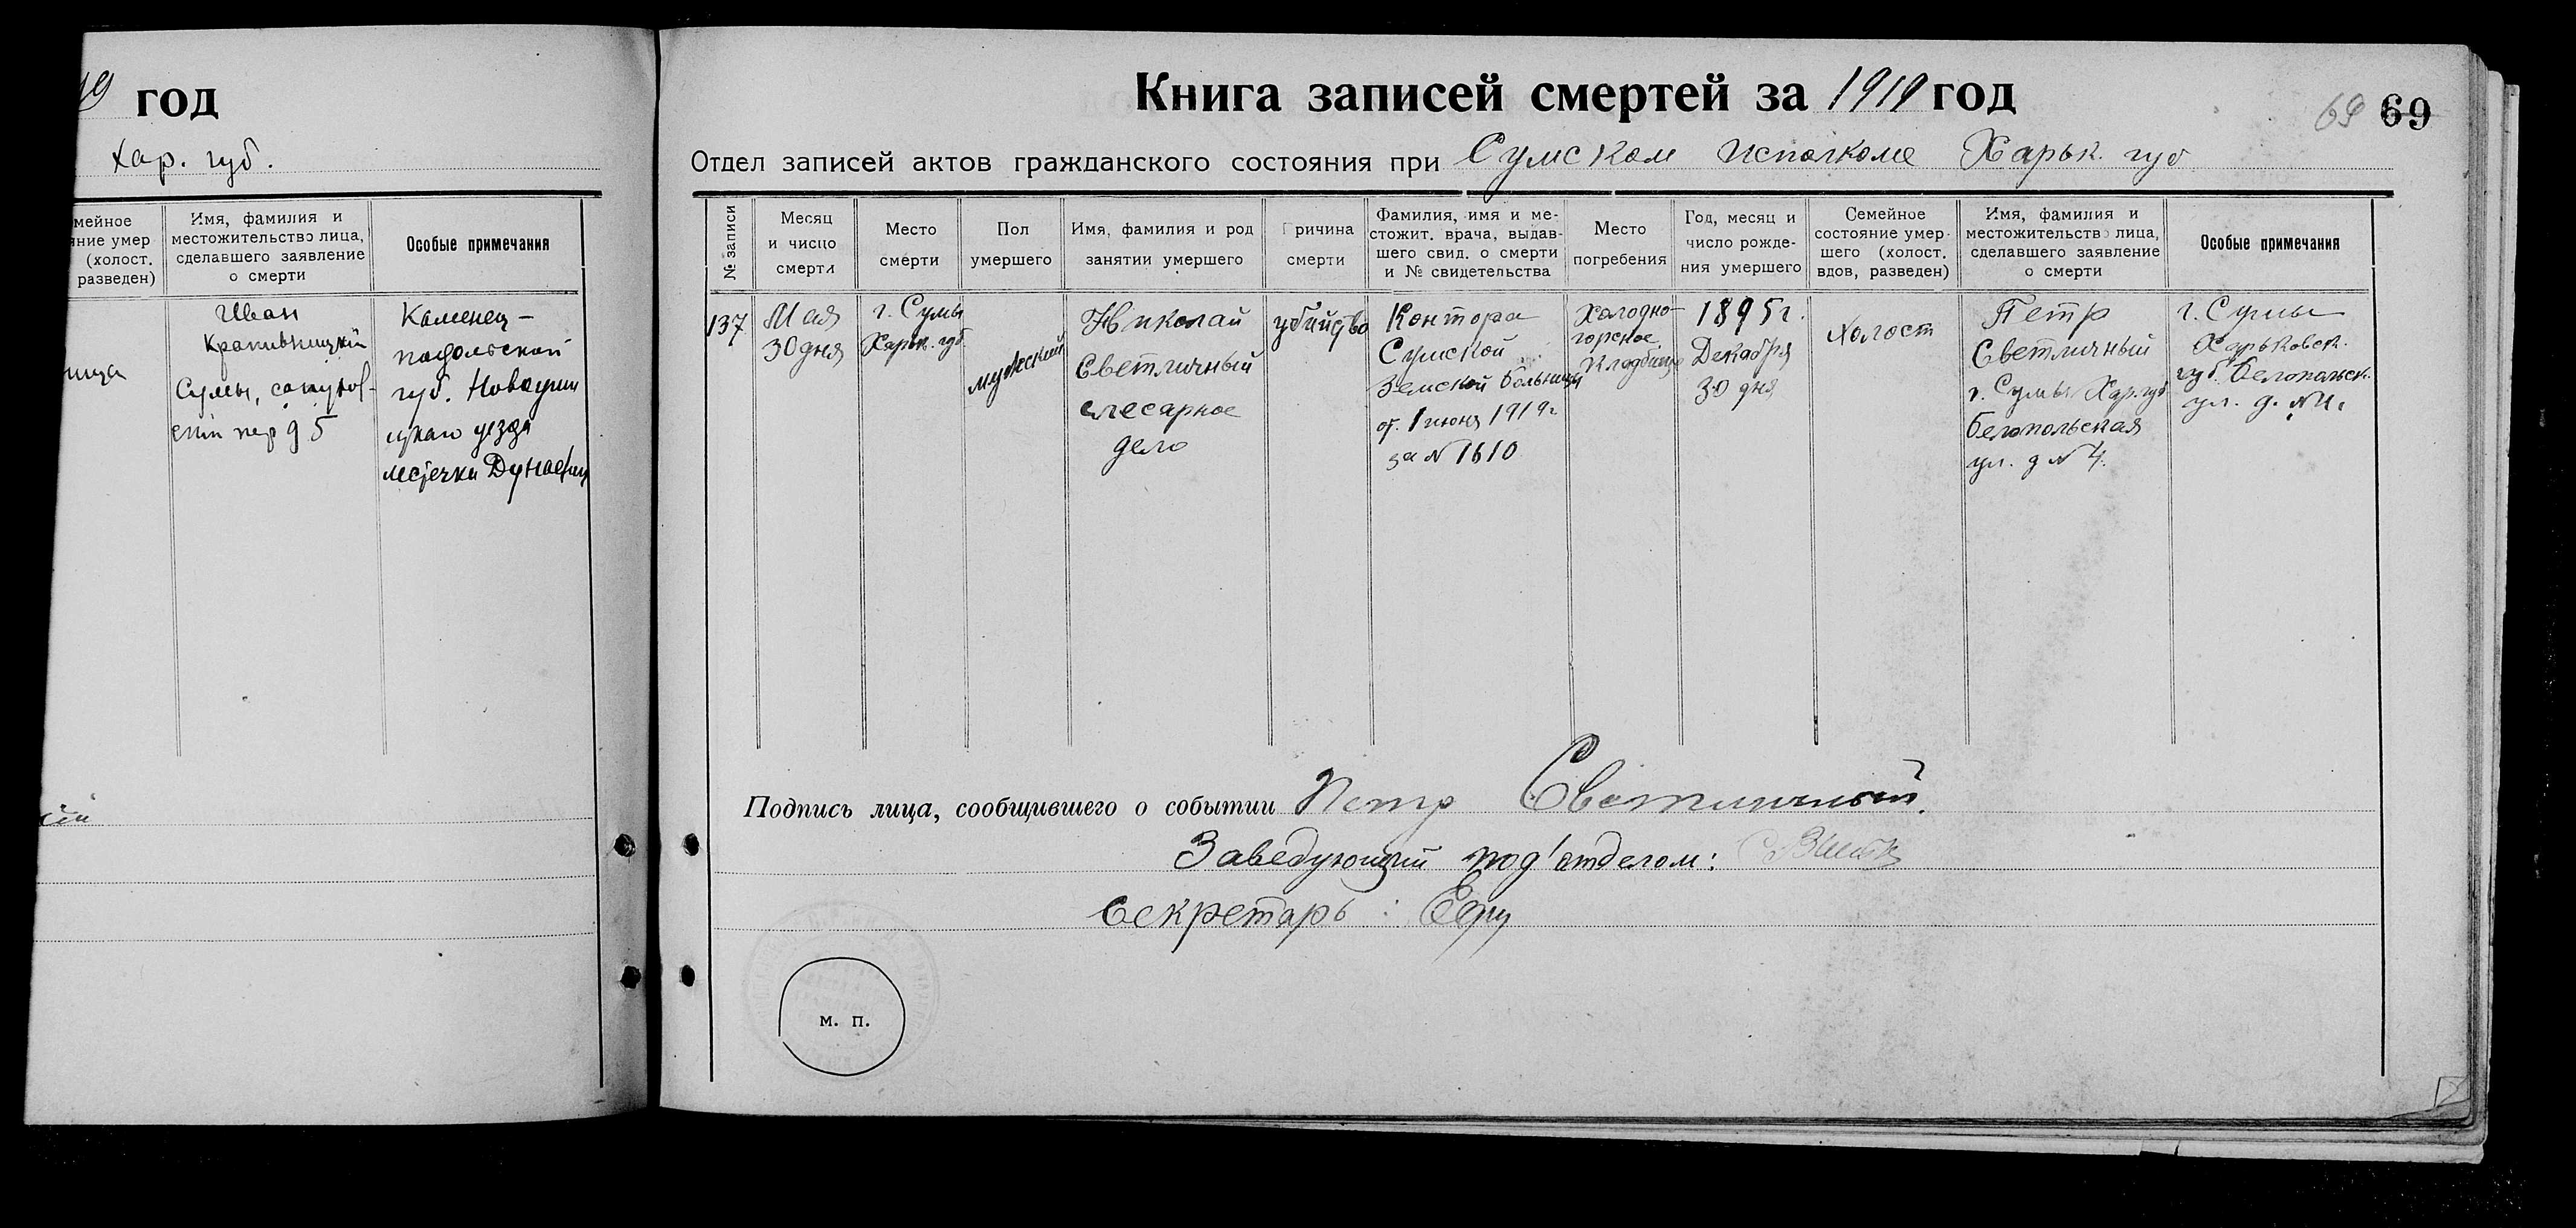 19 год
Хар. губ.
мейное
яние умер
(холост.
разведен)
Имя, фамилия и
местожительство лица,
сделавшего заявление
о смерти
Особые примечания
ница
Иван
Крапивницкій
Сумы,
пер д 5
Каменец-
подольской
губ. Новоушиц
уезда
местечка Дунаевцы
кій
Книга записей смертей за 1919 год
69 69
Отдел записей актов гражданского состояния при Сумском Исполкоме Харьк. губ
№ записи
Месяц
и число
смерти
Место
смерти
Пол
умершего
Имя, фамилия и род
занятии умершего
Причина
смерти
Фамилия, имя и ме-
стожит. врача, выдав-
шего свид. о смерти
и № свидетельства
Место
погребения
Год, месяц и
число рожде-
ния умершего
Семейное
состояние умер-
шего (холост.
вдов, разведен)
Имя, фамилия и
местожительство лица,
сделавшего заявление
о смерти
Особые примечания
137
Мая
30 дня
г. Сумы
Харьк. губ.
мужеский
Николай
Светличный
слесарное
дело
убийство
Контора
Сумской
Земской больницы
от 1 июня 1919г
за № 1610
Холодно-
горское
Кладбище
1895г.
Декабря
30 дня
Холост
Петр
Светличный
г. Сумы Хар. губ
Белопольская
ул. д № 4.
г. Сумы
Харьковск.
губ. Белопольск.
ул. д. № 4.
Подпись лица, сообщившего о событии Петр Светличный.
Заведующий под'отделом:
Секретарь:
м. п.